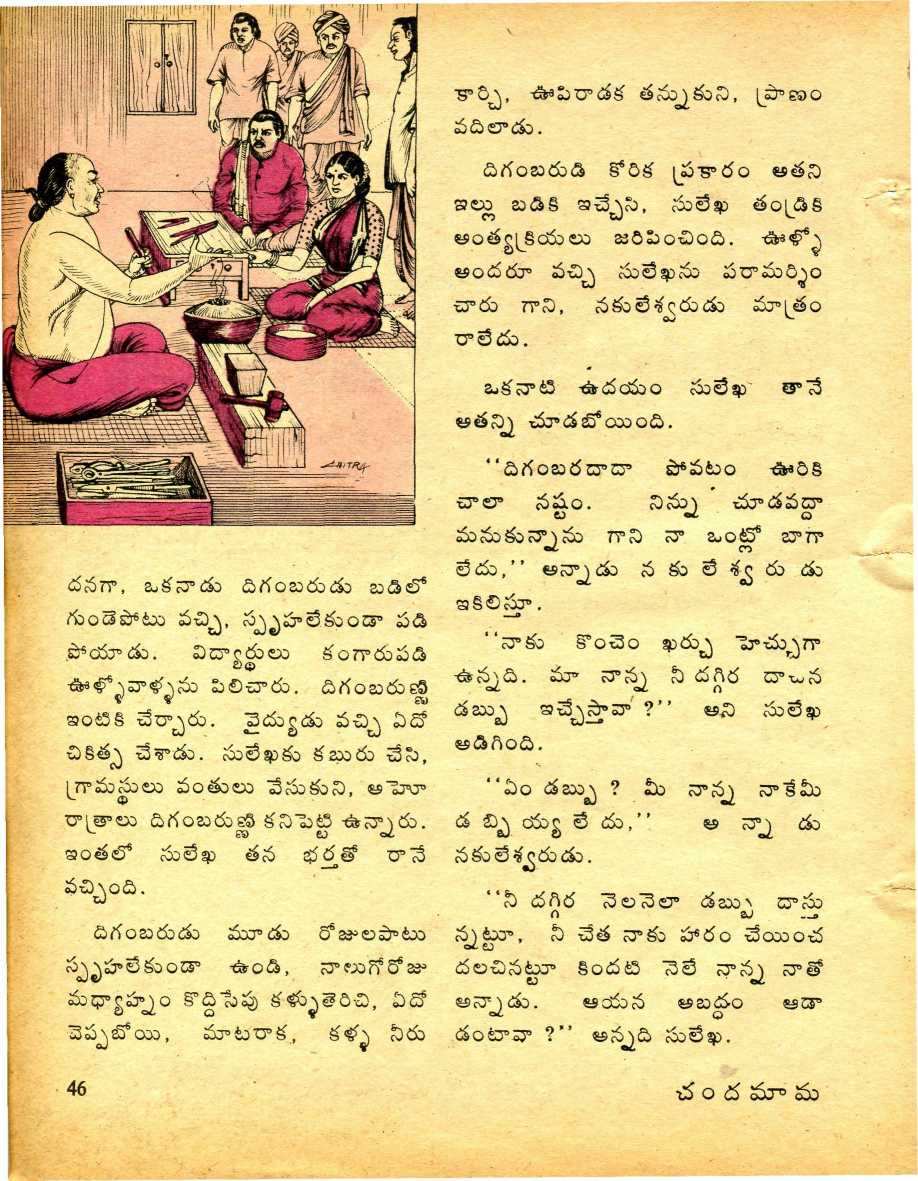 CHITRA
దనగా, ఒకనాడు దిగంబరుడు బడిలో
గుండెపోటు వచ్చి, స్పృహలేకుండా పడి
పోయాడు. విద్యార్థులు కంగారుపడి
ఊళ్ళోవాళ్ళను పిలిచారు. దిగంబరుణ్ణి
ఇంటికి చేర్చారు. వైద్యుడు వచ్చి ఏదో
చికిత్స చేశాడు. సులేఖకు కబురు చేసి,
గ్రామస్థులు వంతులు వేసుకుని, అహో
రాత్రాలు దిగంబరుణ్ణి కనిపెట్టి ఉన్నారు.
ఇంతలో సులేఖ తన భర్తతో రానే
వచ్చింది.
దిగంబరుడు మూడు రోజులపాటు
స్పృహలేకుండా ఉండి, నాలుగోరోజు
మధ్యాహ్నం కొద్దిసేపు కళ్ళుతెరిచి, ఏదో
చెప్పబోయి, మాటరాక, కళ్ళ నీరు
కార్చి, ఊపిరాడక తన్నుకుని, ప్రాణం
వదిలాడు.
దిగంబరుడి కోరిక ప్రకారం అతని
ఇల్లు బడికి ఇచ్చేసి, సులేఖ తండ్రికి
అంత్యక్రియలు జరిపించింది. ఊళ్ళో
అందరూ వచ్చి సులేఖను పరామర్శిం
చారు గాని, నకులేశ్వరుడు మాత్రం
రాలేదు.
ఒకనాటి ఉదయం సులేఖ తానే
అతన్ని చూడబోయింది.
‘‘దిగంబరదాదా పోవటం ఊరికి
చాలా నష్టం. నిన్ను చూడవద్దా
మనుకున్నాను గాని నా ఒంట్లో బాగా
లేదు,’’ అన్నాడు నకులేశ్వరుడు
ఇకిలిస్తూ.
‘‘నాకు కొంచెం ఖర్చు హెచ్చుగా
ఉన్నది. మా నాన్న నీ దగ్గిర దాచిన
డబ్బు ఇచ్చేస్తావా ?’’ అని సులేఖ
అడిగింది.
‘‘ఏం డబ్బు ? మీ నాన్న నాకేమీ
డబ్బియ్యలేదు,’’ అన్నాడు
నకులేశ్వరుడు.
‘‘నీ దగ్గిర నెలనెలా డబ్బు దాస్తు
న్నట్టూ, నీ చేత నాకు హారం చేయించ
దలచినట్టూ కిందటి నెలే నాన్న నాతో
అన్నాడు. ఆయన అబద్ధం ఆడా
డంటావా ?’’ అన్నది సులేఖ.
46
చందమామ